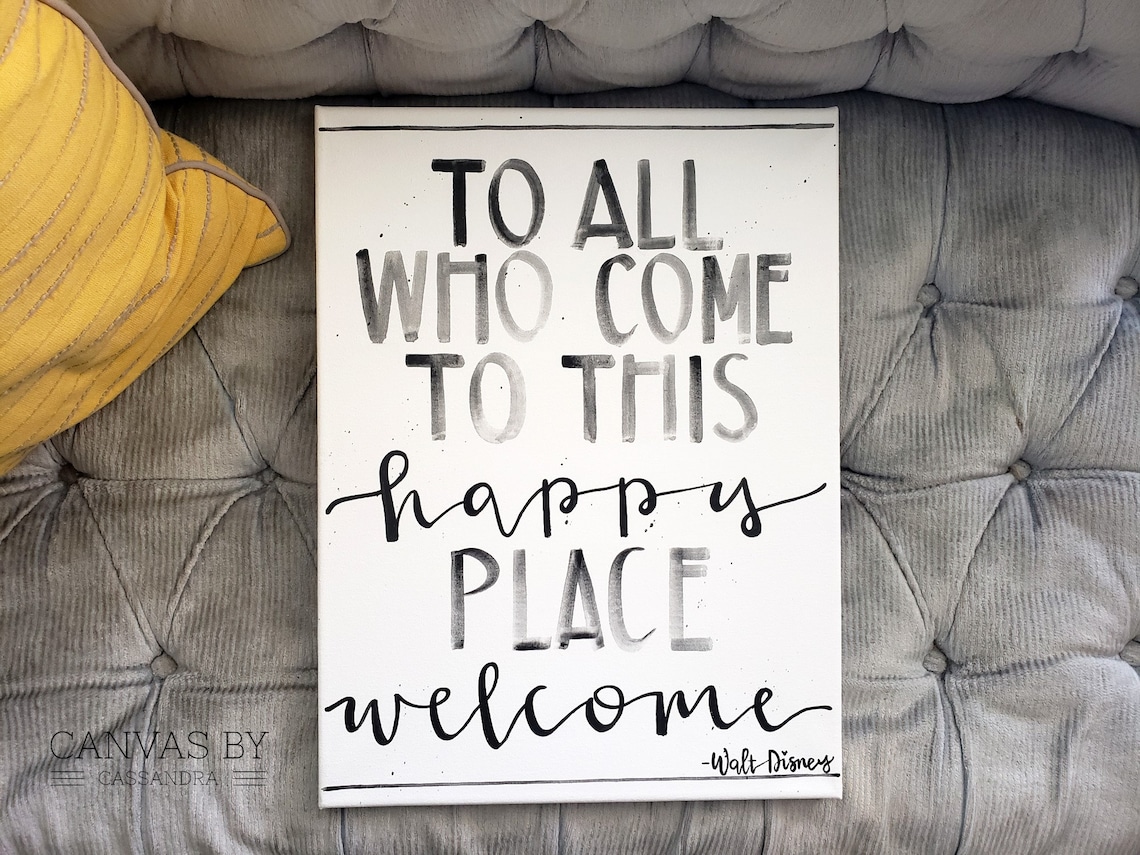 TO ALL
WHO COME
TO THIS
happy
PLACE
welcome
-Walt Disney
CANVAS BY
CASSANDRA